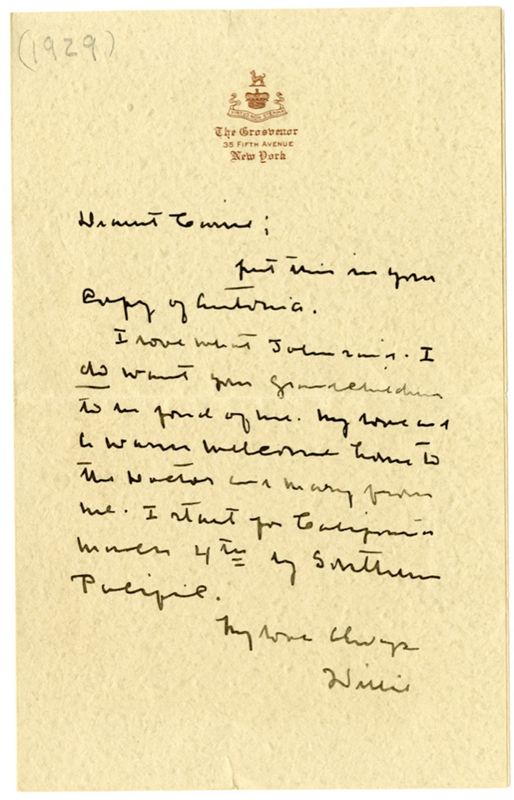 (1929)
The Grosvenor
35 Fifth Avenue
New York
Dearest Carrie;
put this in your
Copy of Antonia.
I love what John says. I
do want your grandchildren
to be fond of me. My love and
a warm welcome home to
the Doctor and Mary from
me. I start for California
March 4th by Southern
Pacific.
My love always
Willie